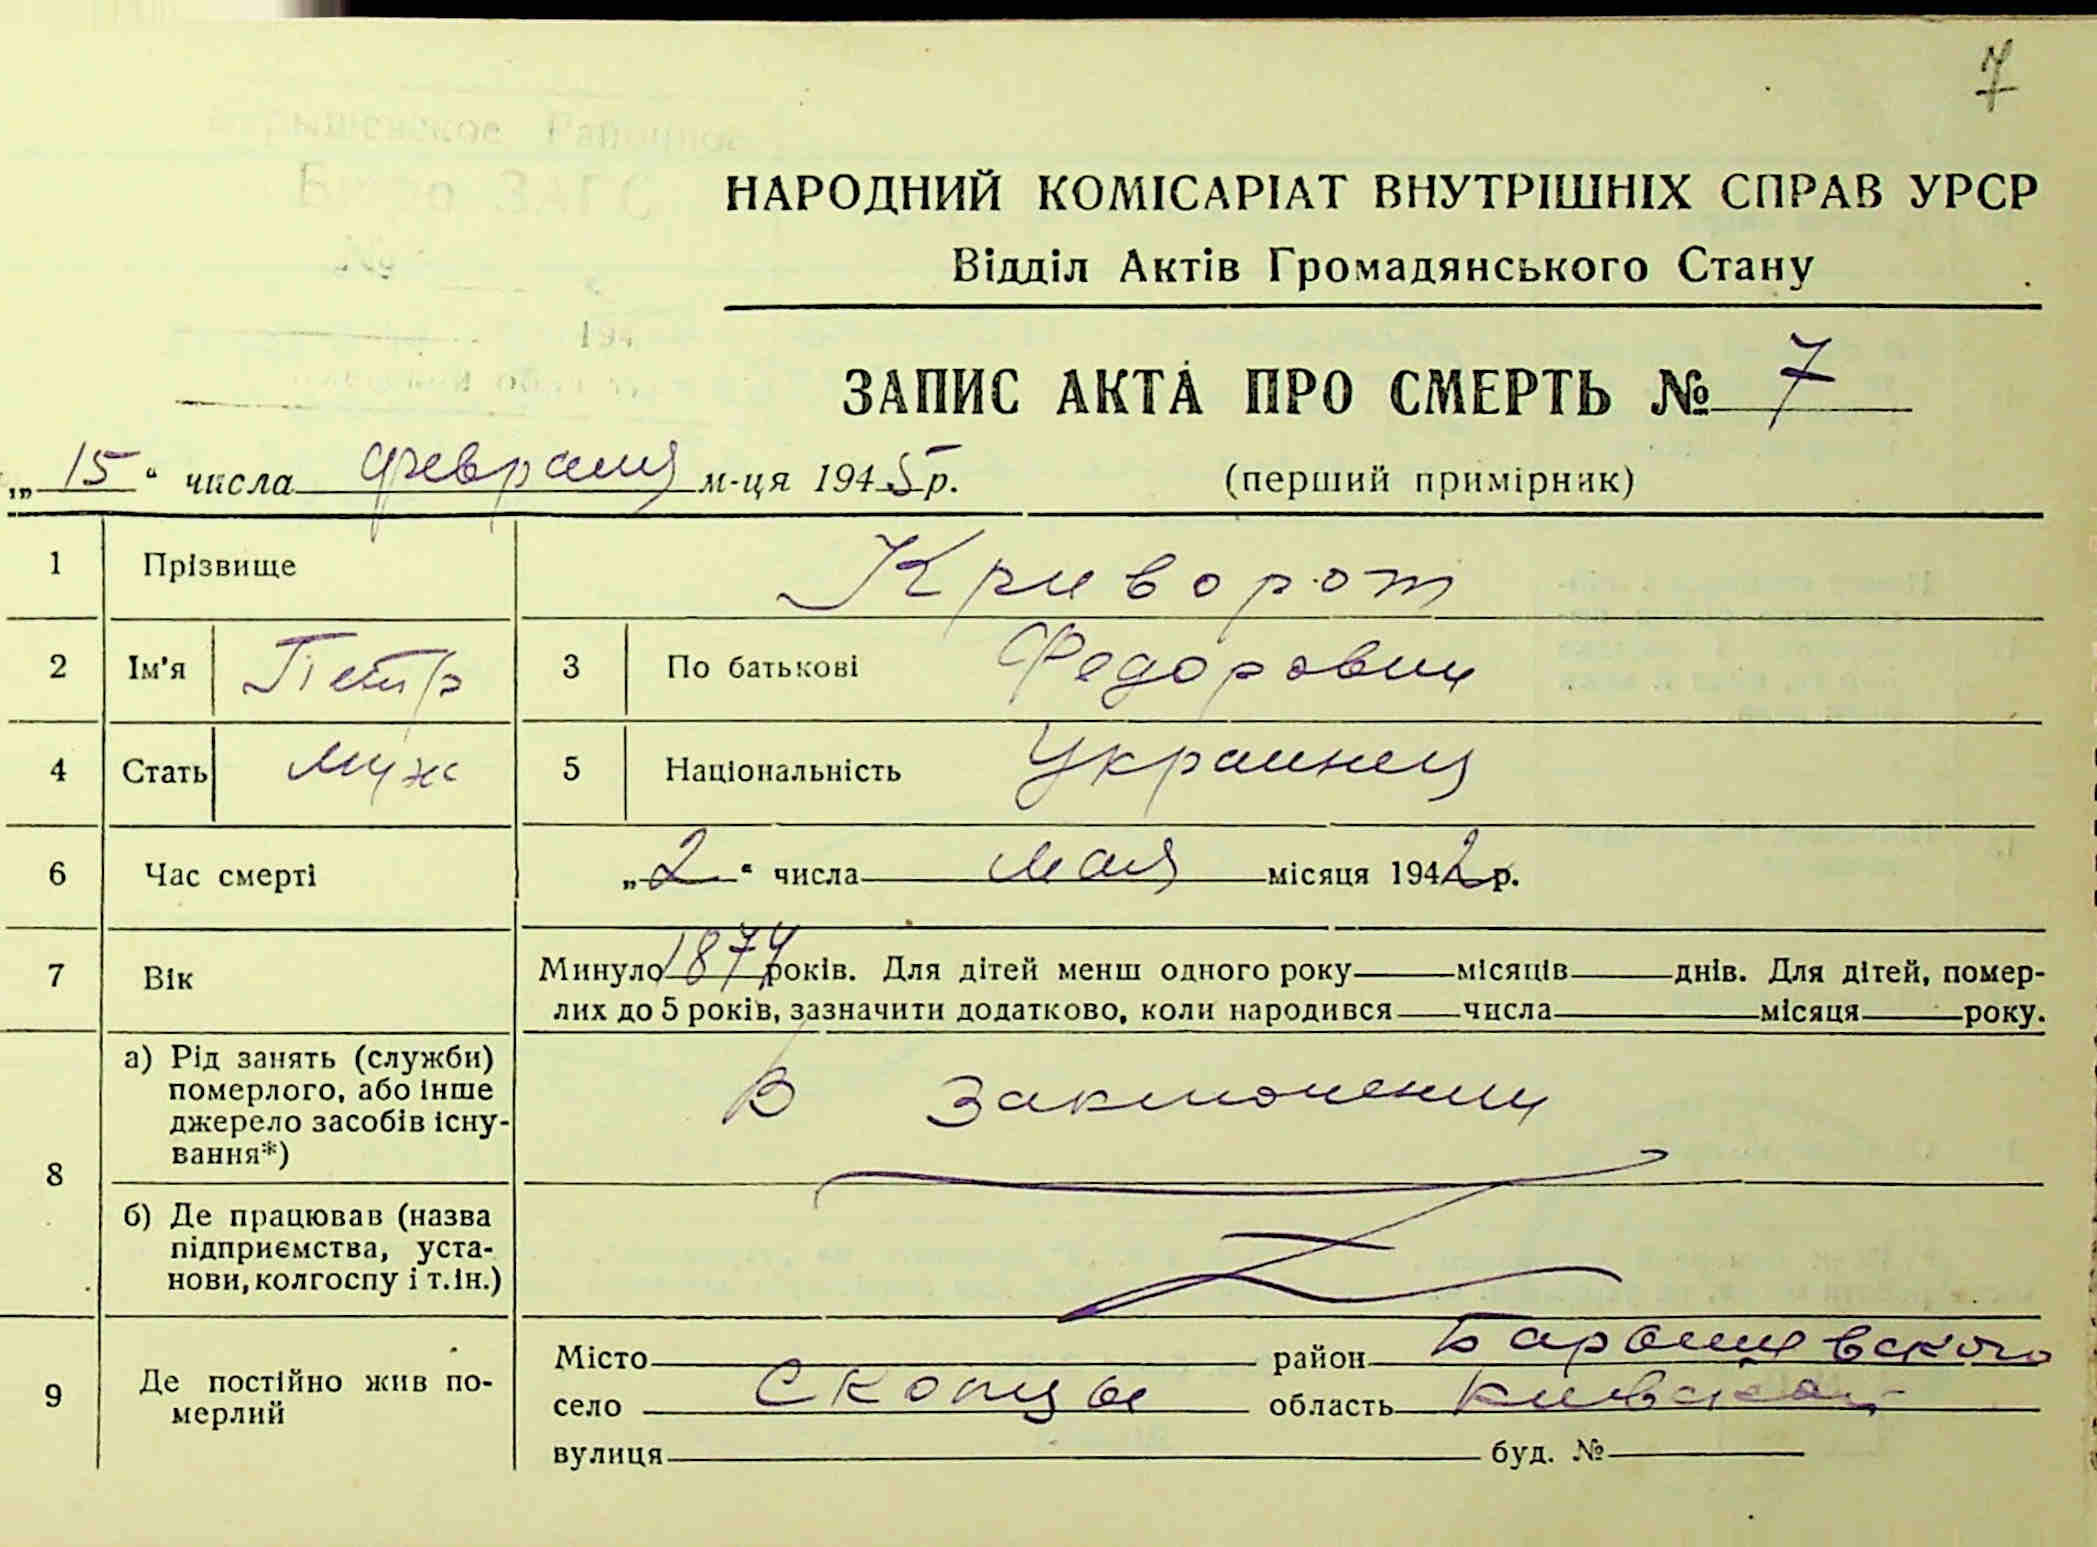 7
Барышевское Районное
Бюро ЗАГС
НАРОДНИЙ КОМІСАРІАТ ВНУТРІШНІХ СПРАВ УРСР
Відділ Актів Громадянського Стану
194
ЗАПИС АКТА ПРО СМЕРТЬ № 7
„15“ числа февраля м-ця 1945 р. (перший примірник)
1 Прізвище Криворот
2 Ім'я Петр 3 По батькові Федорович
4 Стать муж 5 Національність Украинец
6 Час смерті „2“ числа мая місяця 1942 р.
7 Вік Минуло 1874 років. Для дітей менш одного року місяців днів. Для дітей, помер-
лих до 5 років, зазначити додатково, коли народився числа місяця року.
8 а) Рід занять (служби)
померлого, або інше
джерело засобів існу-
вання*) В Заключении
б) Де працював (назва
підприємства, уста-
нови, колгоспу і т.ін.)
9 Де постійно жив по-
мерлий
Місто район Барышевского
село Скопцы область Киевской
вулиця буд. №